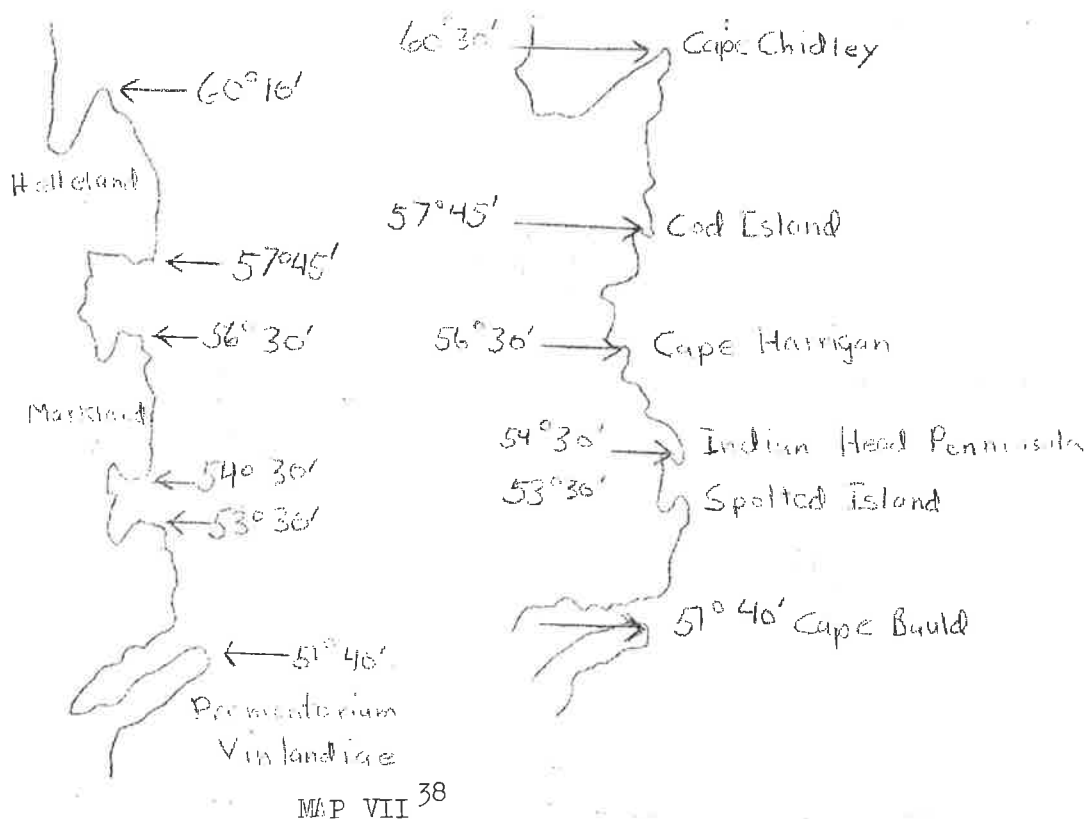 60°10'
Helleland
57°45'
56° 30'
Markland
54° 30'
53° 30'
51° 40'
Promentorium
Vinlandiae
60° 30'
Cape Chidley
57°45'
Cod Island
56° 30'
Cape Harrigan
54° 30'
Indian Head Penninsula
53°30'
Spotted Island
51° 40' Cape Bauld
MAP VII 38